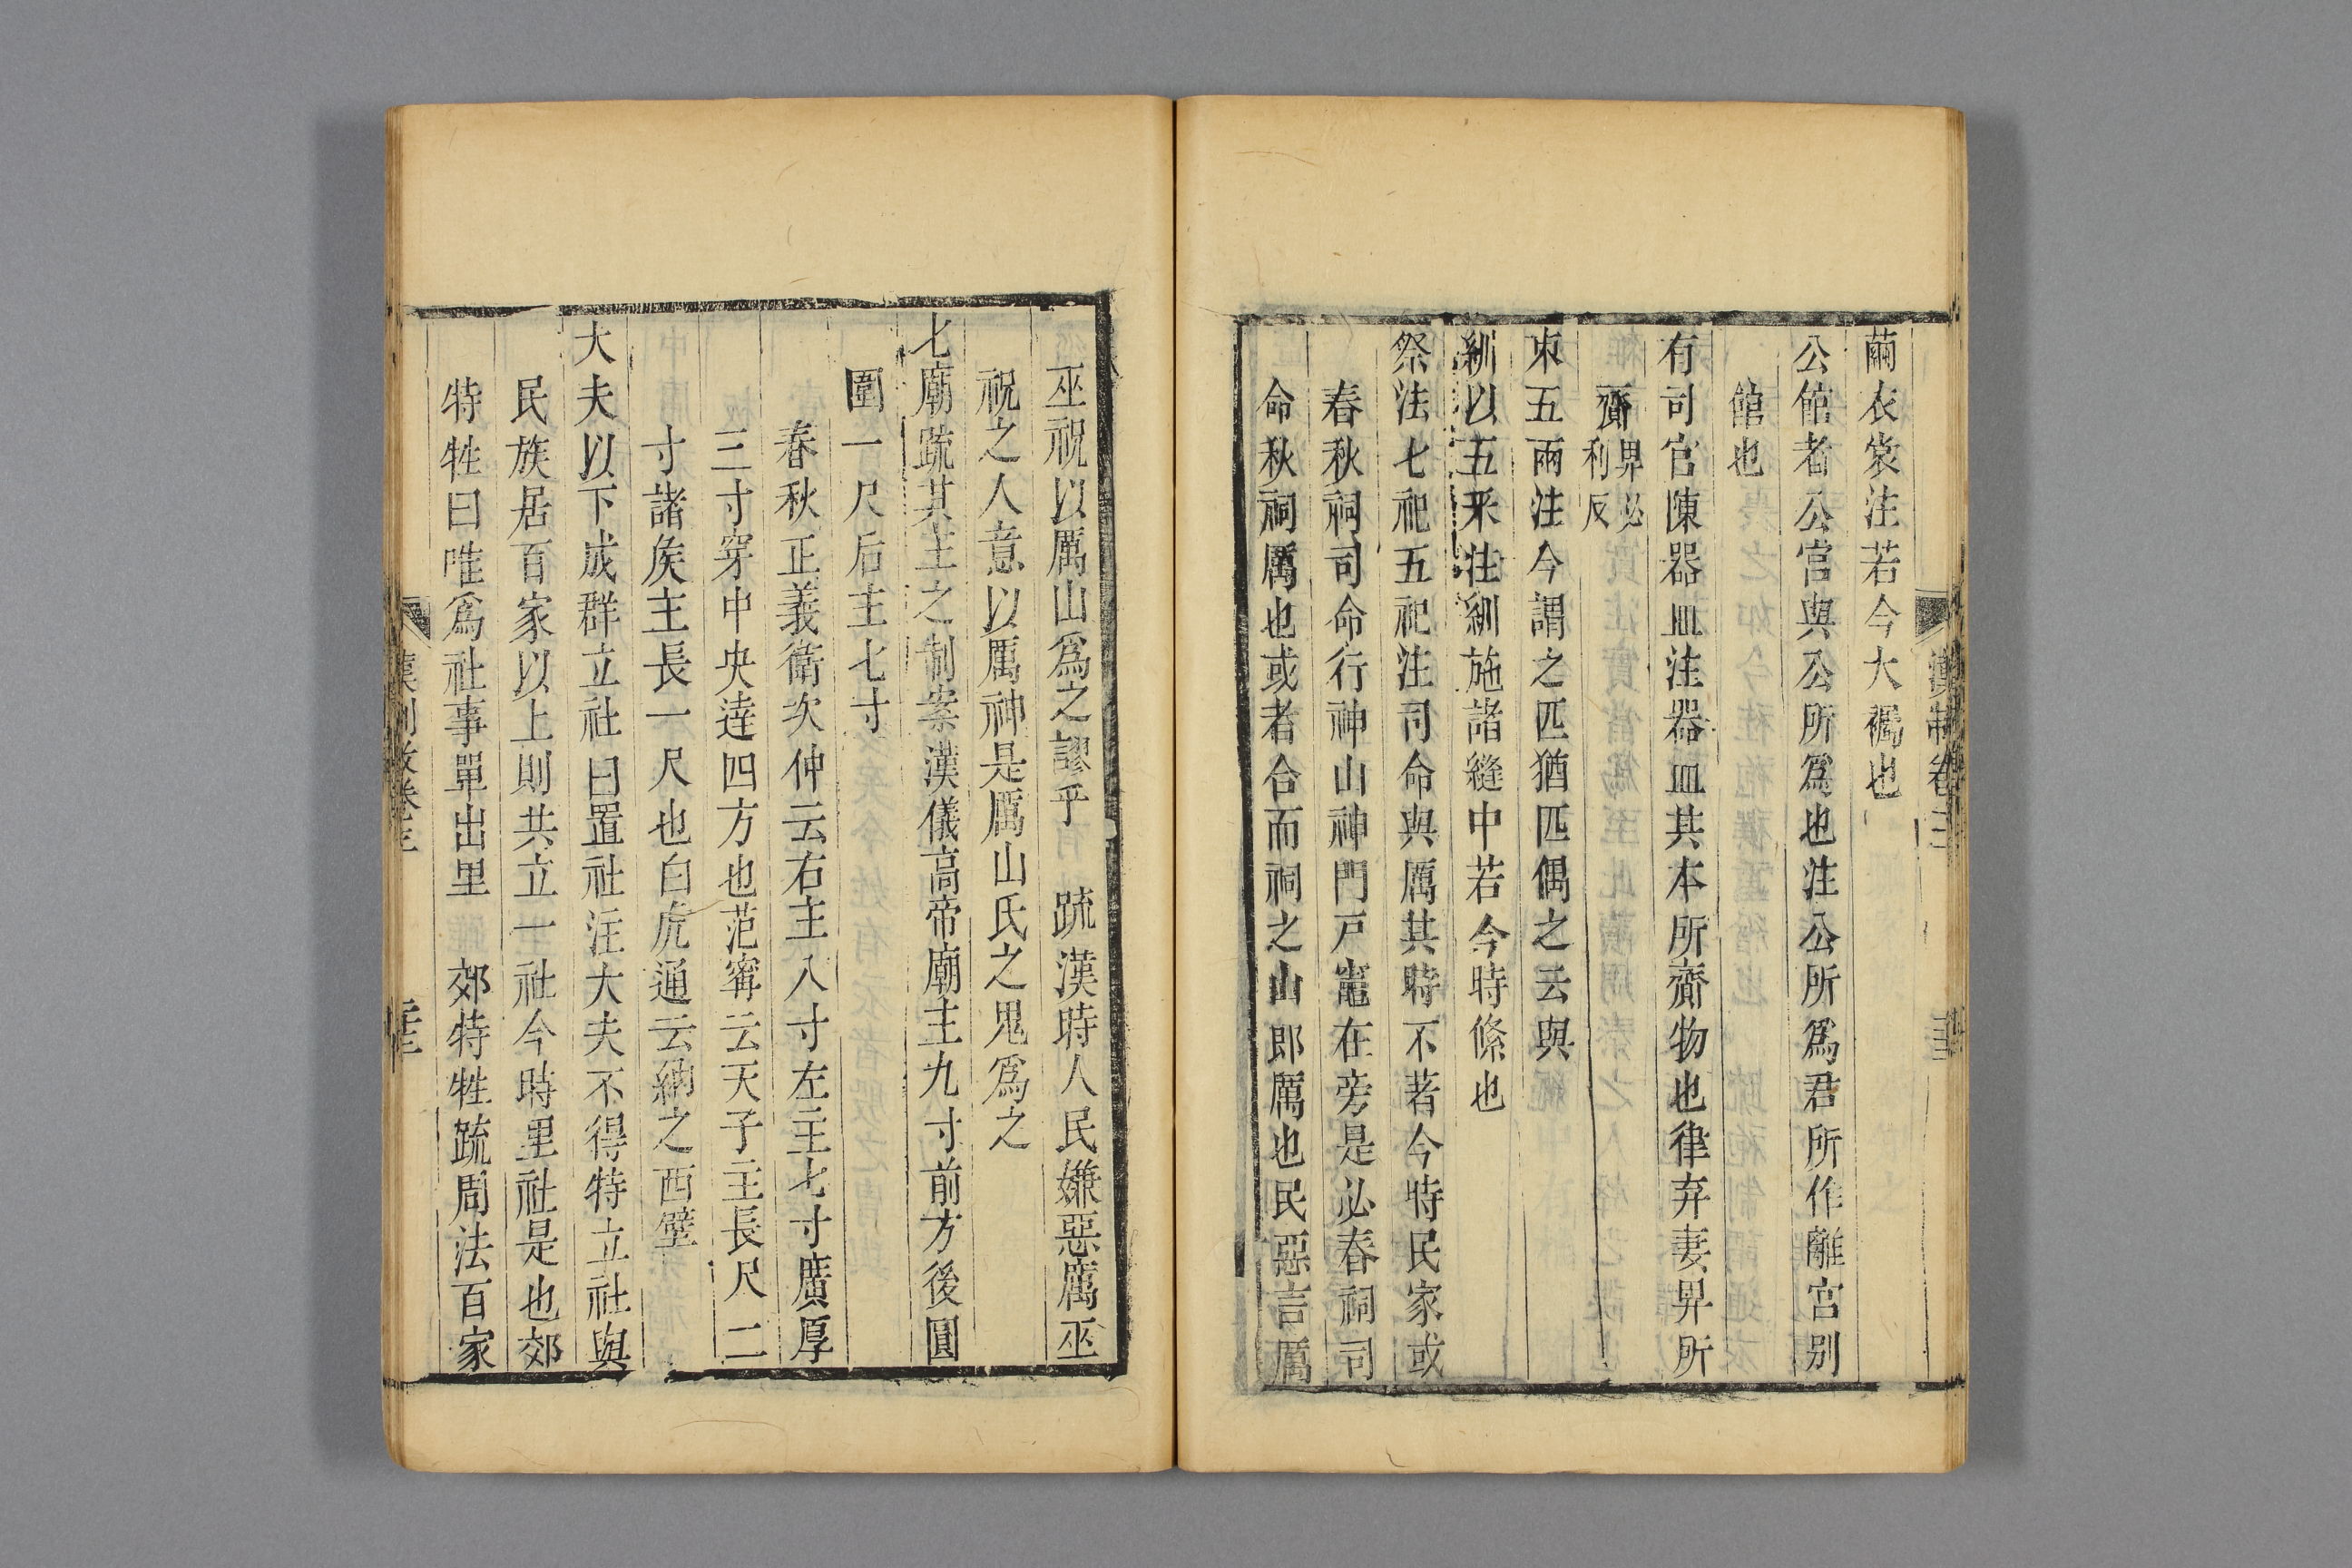 漢制卷三
繭衣裳注若今大襡也
公館者公宫與公所爲也注公所爲君所作離宫别
館也
有司官陳器皿注器皿其本所齎物也律弃妻畀所
齎畀必利反
束五兩注今謂之匹猶匹偶之云與
紃以五采注紃施諸縫中若今時絛也
祭法七祀五祀注司命與厲其時不著今時民家或
春秋祠司命行神山神門戸竈在旁是必春祠司
命秋祠厲也或者合而祠之山郎厲也民惡言厲
巫祝以厲山爲之謬乎 疏漢時人民嫌惡厲巫
祝之人意以厲神是厲山氏之鬼爲之
七廟疏其主之制案漢儀高帝廟主九寸前方後圓
圍一尺后主七寸
春秋正義衛次仲云右主八寸左主七寸廣厚
三寸穿中央達四方也范甯云天子主長尺二
寸諸矦主長一尺也白虎通云納之西壁
大夫以下成群立社曰置社注大夫不得特立社與
民族居百家以上則共立一社今時里社是也郊
特牲曰唯爲社事單出里 郊特牲疏周法百家
漢制攷卷三